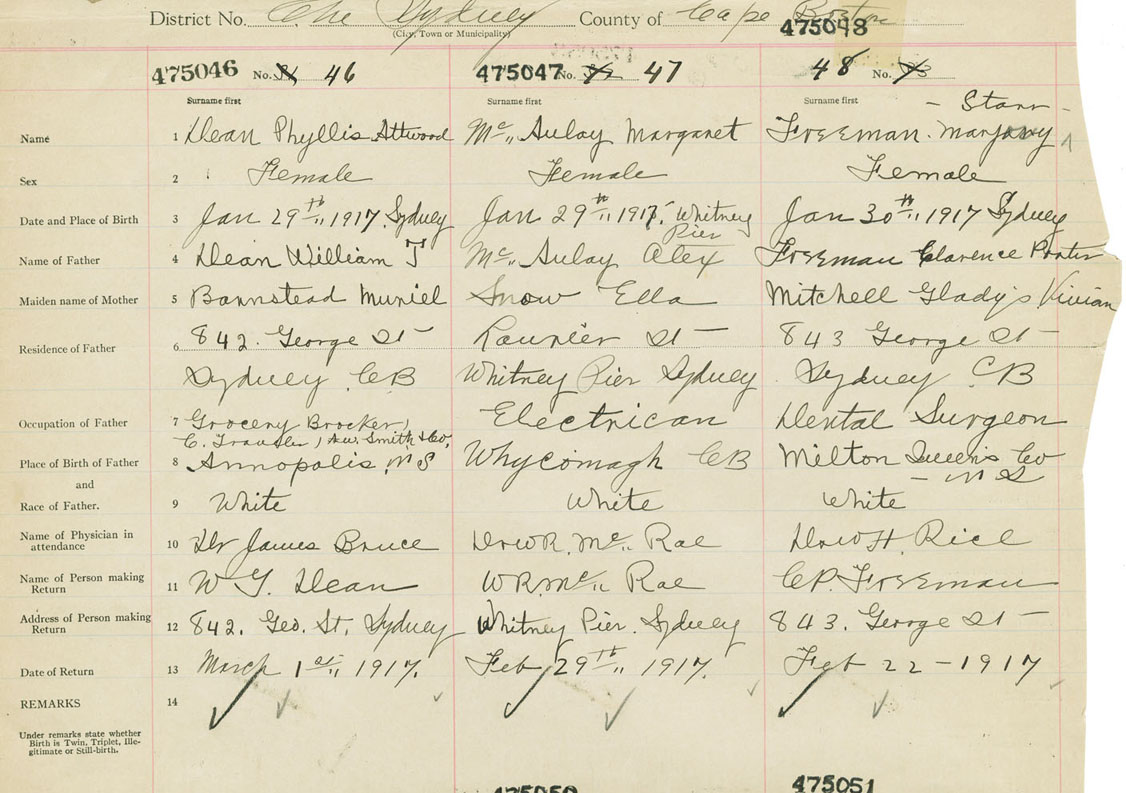 District No. The Sydney County of Cape Breton
(City, Town or Municipality)
475048
475046 No. 46 475047 No. 47 48 No.
Surname first Surname first Surname first - Starr -
Name 1 Dean Phyllis Attwood Mc,, Aulay Margaret Freeman. Marjory
Sex 2 Female Female Female
Date and Place of Birth 3 Jan 29th,, 1917. Sydney Jan 29th,, 1917. Whitney Pier Jan 30th,, 1917 Sydney
Name of Father 4 Dean William T Mc,, Aulay Alex Freeman Clarence Porter
Maiden name of Mother 5 Bannstead Muriel Snow Ella Mitchell Gladys Vivian
Residence of Father 6 842. George St Laurier St 843 George St
Sydney CB Whitney Pier Sydney Sydney CB
Occupation of Father 7 Grocery Brocker, Electrican Dental Surgeon
C. Traveler, A.W. Smith & Co,
Place of Birth of Father 8 Annopolis, N S Whycomagh CB Milton Queens Co
and - N S
Race of Father. 9 White White White
Name of Physician in attendance 10 Dr James Bruce Dr W R. Mc,, Rae Dr W H. Rice
Name of Person making Return 11 W T. Dean W R. Mc,, Rae C P. Freeman
Address of Person making Return 12 842. Geo. St. Sydney Whitney Pier. Sydney 843. George St
Date of Return 13 March 1st,, 1917. Feb 29th,, 1917. Feb 22-1917
REMARKS 14
Under remarks state whether
Birth is Twin, Triplet, Ille-
gitimate or Still-birth.
475050 475051